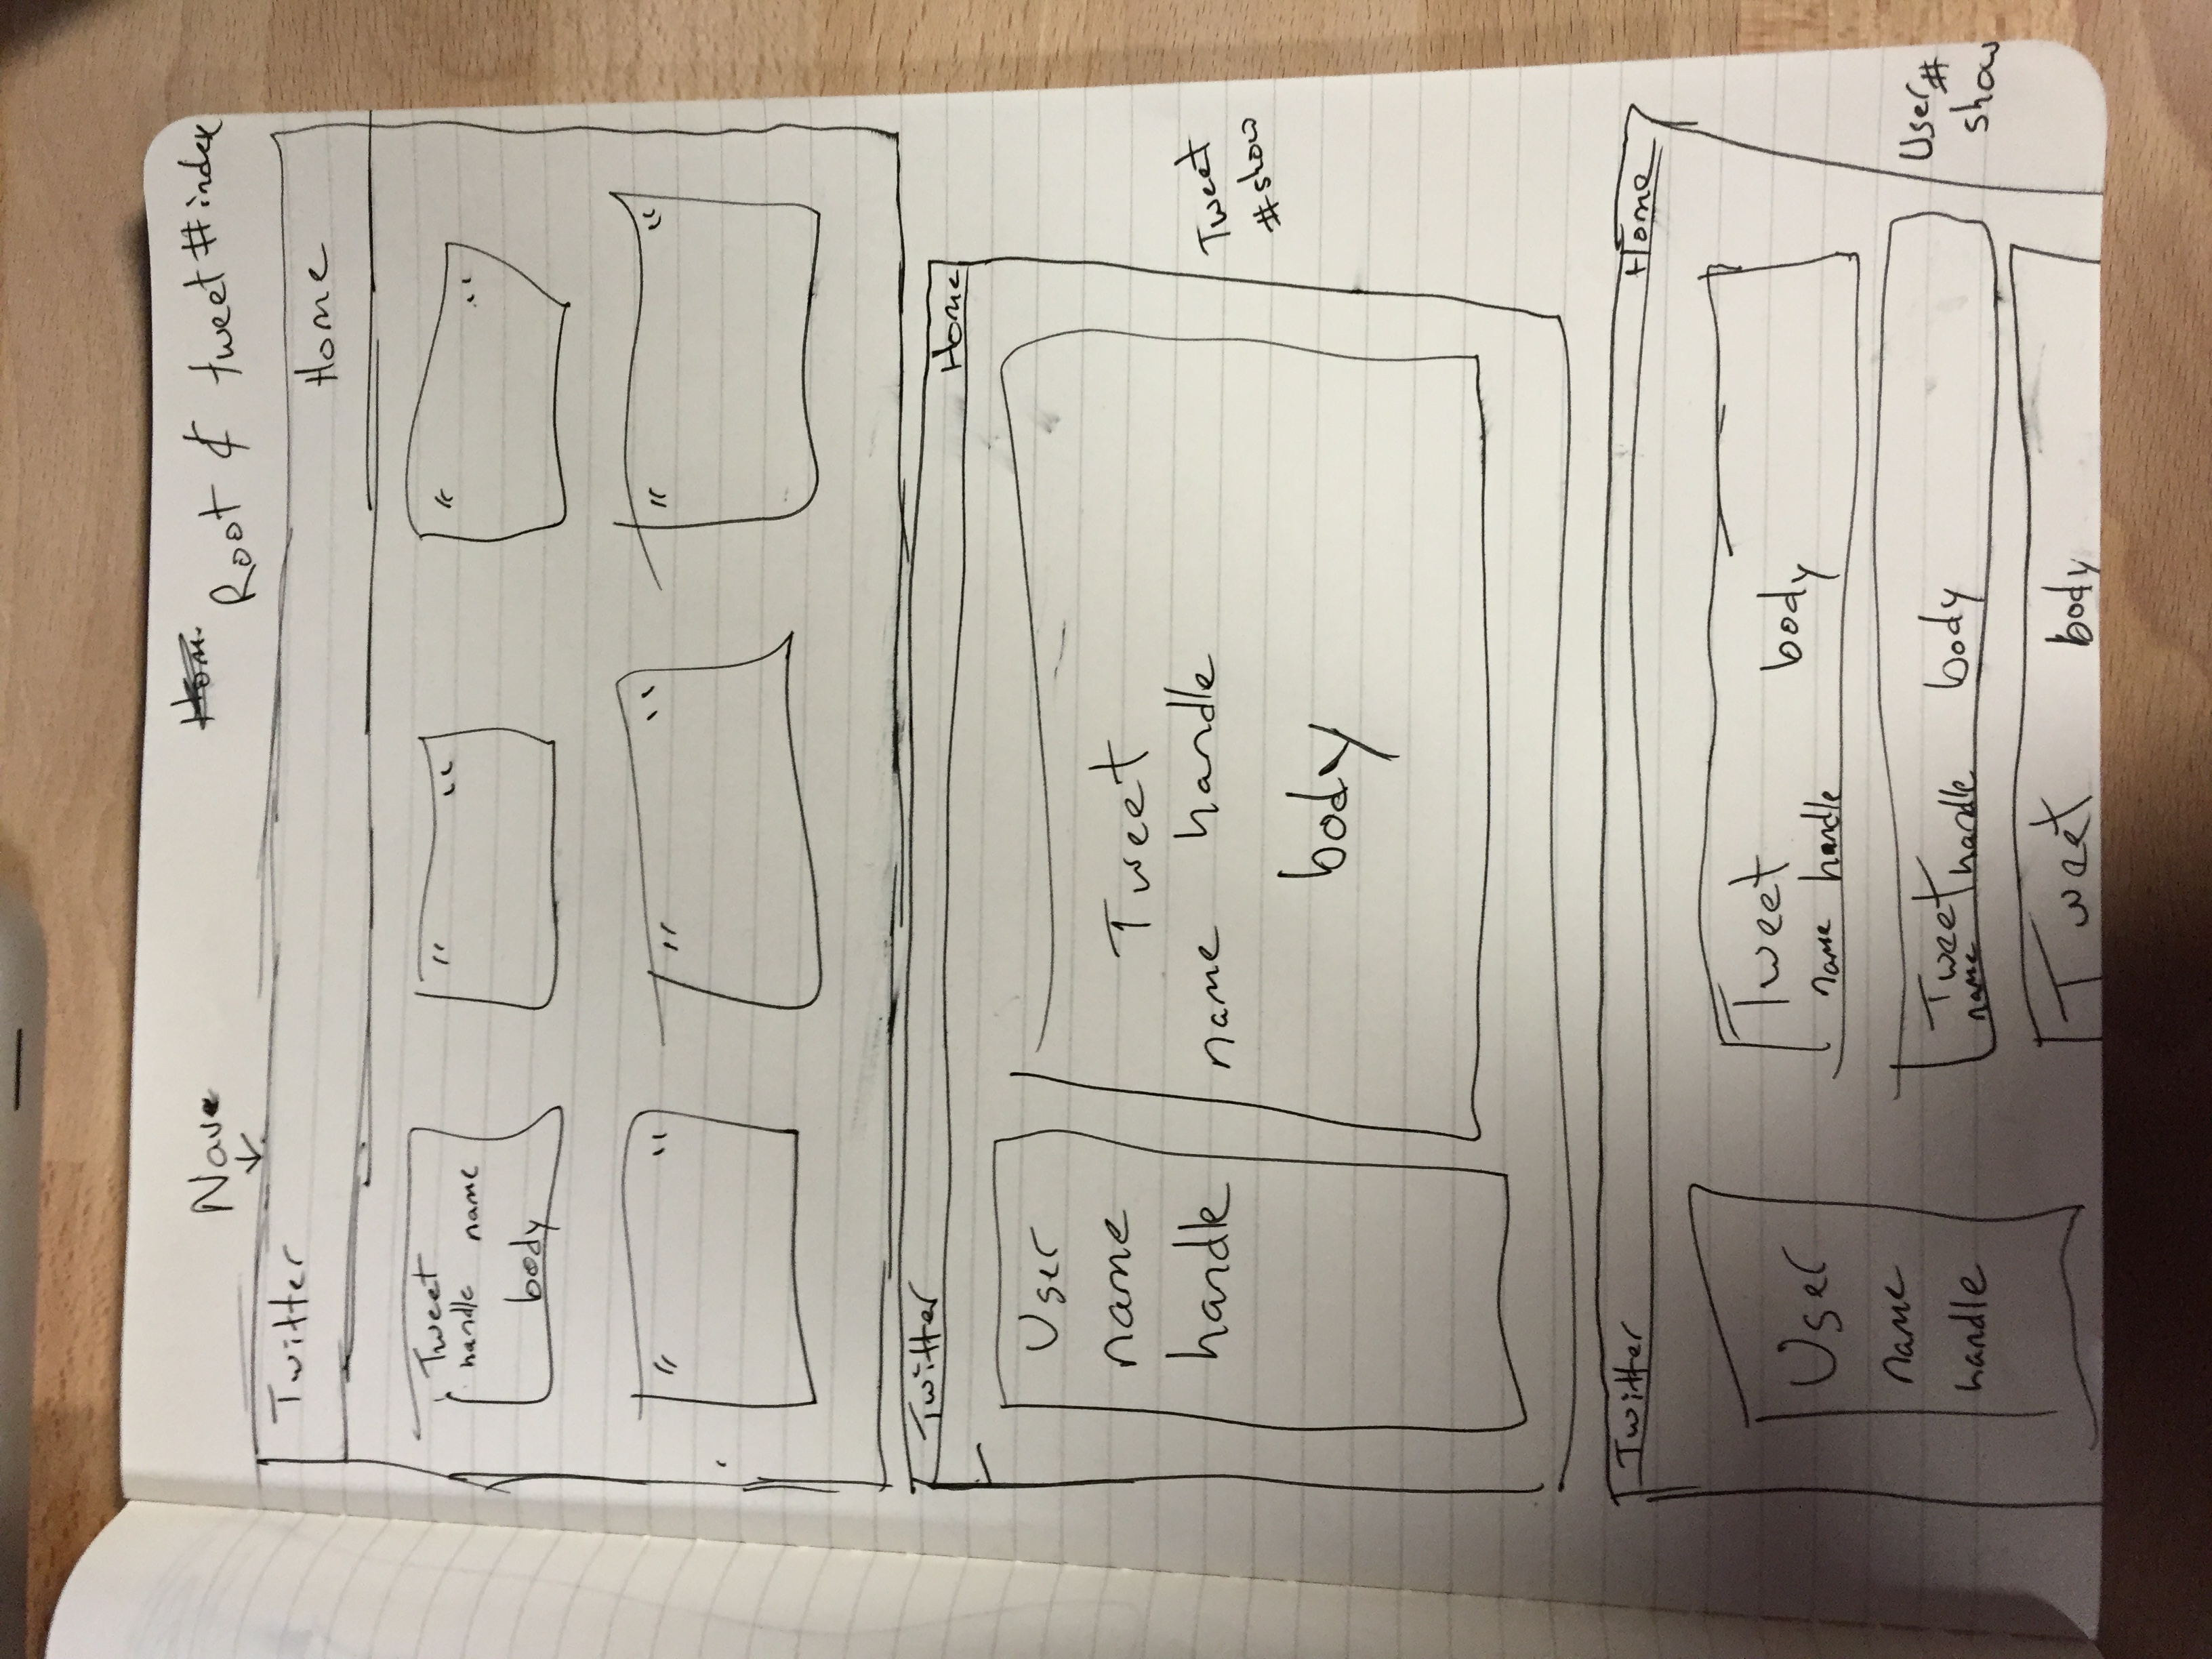 Nave
Root & tweet #index
Twitter Home
Tweet
handle name
body
" "
" "
" "
" "
" "
Twitter Home
User
name
handle
Tweet
name handle
body
Tweet
#show
Twitter Home
User
name
handle
Tweet body
name handle
Tweet handle body
name
Tweet body
User#
show